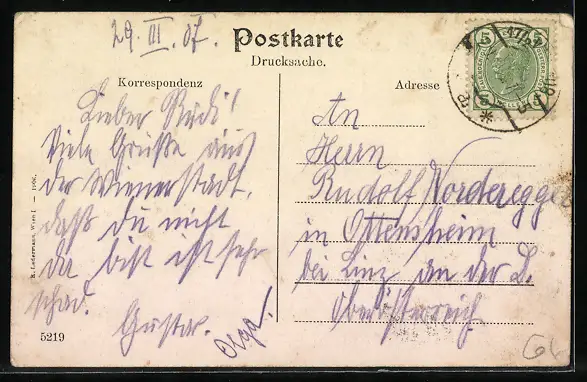 29. III. 07.
Postkarte
Drucksache.
Korrespondenz
Adresse
Lieber Rudi!
Viele Grüße aus
der Wienerstadt,
daß du nicht
da bist ist sehr
schad.
Gustav.
Olga!
An
Herrn
Rudolf Norderegger
in Ottensheim
bei Linz an der D.
Oberösterreich
5219
B. Ledermann, Wien I. — 1906.
5 5